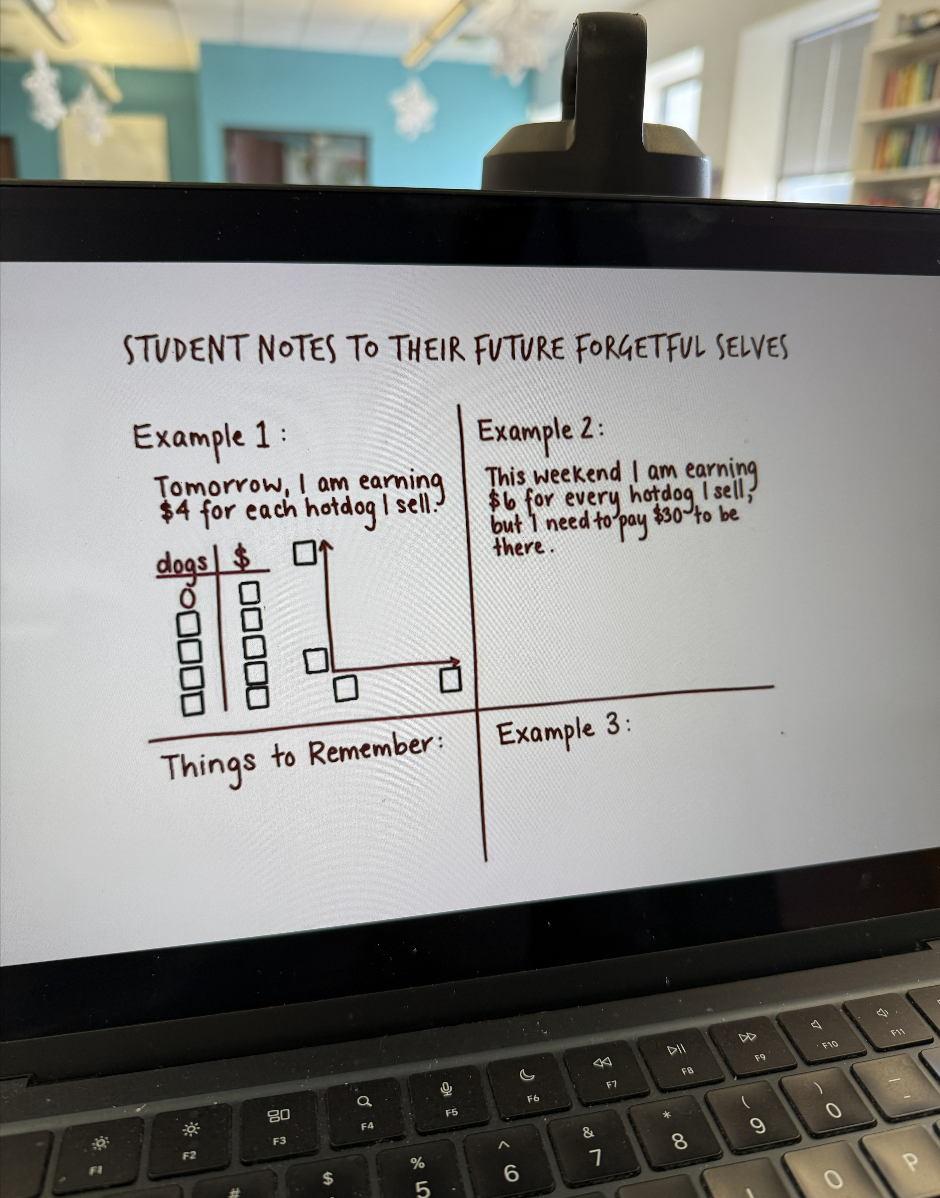 STUDENT NOTES TO THEIR FUTURE FORGETFUL SELVES
Example 1:
Tomorrow, I am earning
$4 for each hotdog I sell.
dogs $
0
Example 2:
This weekend I am earning
$6 for every hotdog I sell,
but I need to pay $30 to be
there.
Things to Remember:
Example 3:
F1
F2
F3
F4
F5
F6
F7
F8
F9
F10
F11
#
$
%
5
^
6
&
7
*
8
(
9
)
0
_
O
P